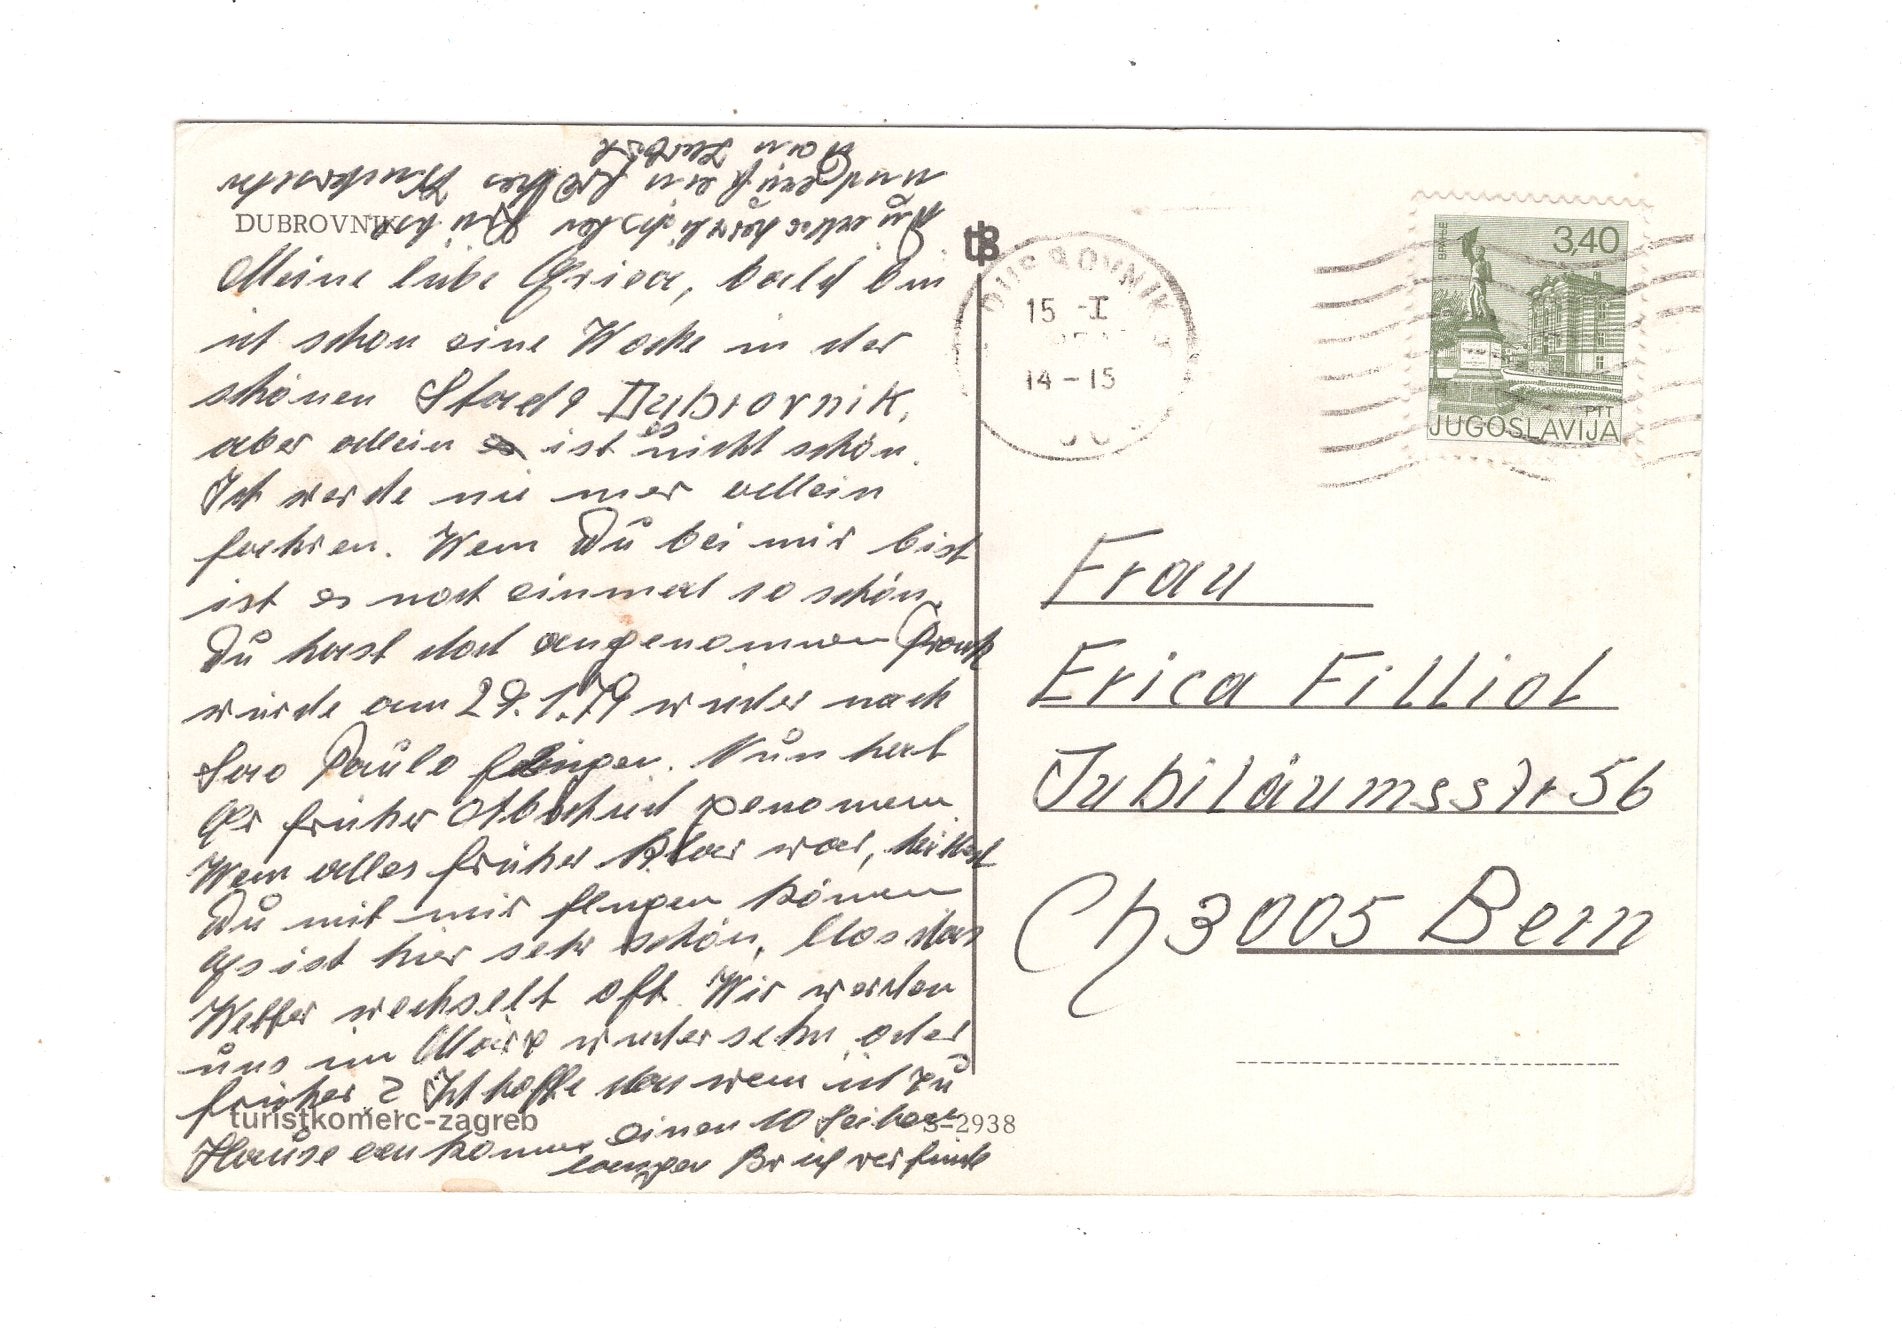 DUBROVNIK
Meine liebe Erica, bald bin
ich schon eine Woche in der
schönen Stadt Dubrovnik,
aber allein ist es nicht schön.
Ich werde nie mer allein
fachren. Wenn Du bei mir bist
ist es noch einmal so schön.
Du hast doch angenommen Frank
würde am 29.1.79 wieder nach
Sao Paulo fliegen. Nun hat
Er früher Abschied genomenn
Wenn alles früher klar war, hättest
Du mit mir fliegen könenn
Es ist hier sehr schön, blos das
Wetter wechselt oft. Wir werden
uns im März wieder sehn oder
früher? Ich hoffe das wenn ich zu
Hause an komme einen 10 Seiten
langen Brief vor finde
Aus der
und ein
von
tB
DUBROVNIK
15 -I
14-15
3,40
PTT
JUGOSLAVIJA
Frau
Erica Filliol
Jubiläumsstr 56
Ch 3005 Bern
turistkomerc-zagreb
S-2938